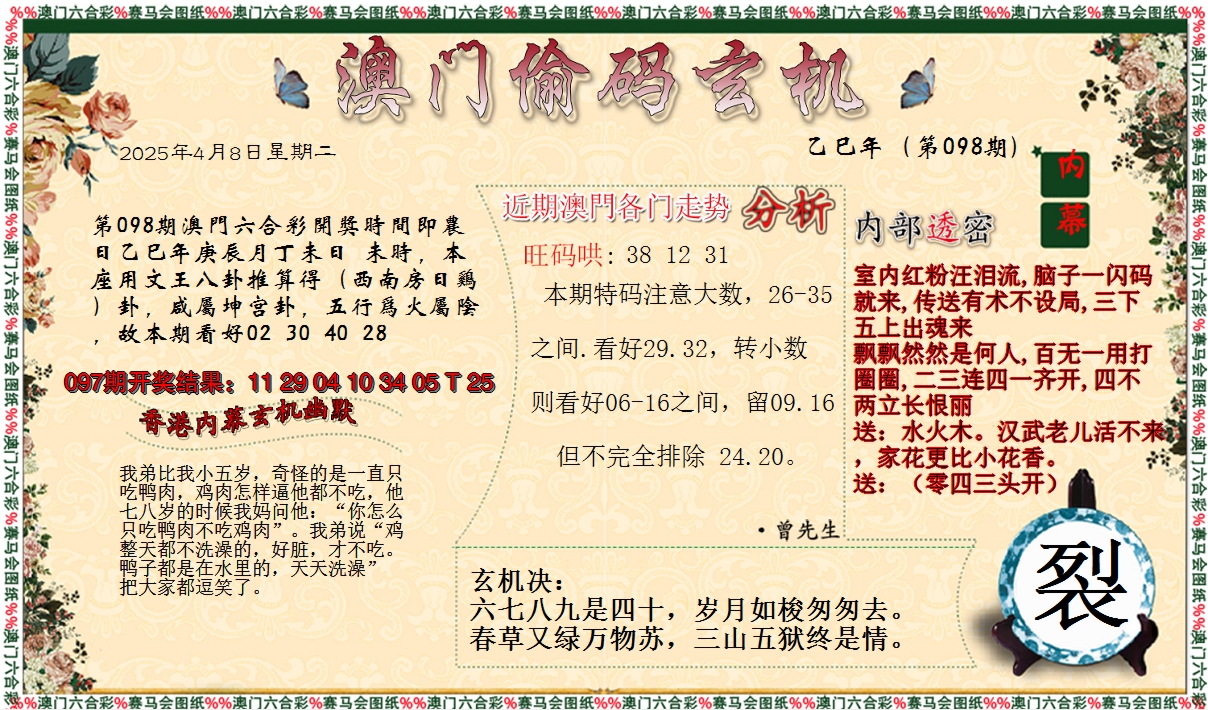 %%澳门六合彩%赛马会图纸%%澳门六合彩%赛马会图纸%%澳门六合彩%赛马会图纸%%澳门六合彩%赛马会图纸%%澳门六合彩%赛马会图纸%%澳门六合彩%赛马会图纸%%
澳门偷码玄机
2025年4月8日星期二
乙巳年（第098期）
内幕
第098期澳門六合彩開獎時間即農
日乙巳年庚辰月丁未日 未時，本
座用文王八卦推算得（西南房日鷄
）卦，咸屬坤宮卦，五行爲火屬陰
，故本期看好02 30 40 28
097期开奖结果：11 29 04 10 34 05 T 25
香港内幕玄机幽默
我弟比我小五岁，奇怪的是一直只
吃鸭肉，鸡肉怎样逼他都不吃，他
七八岁的时候我妈问他：“你怎么
只吃鸭肉不吃鸡肉”。我弟说“鸡
整天都不洗澡的，好脏，才不吃。
鸭子都是在水里的，天天洗澡”
把大家都逗笑了。
近期澳門各门走势 分析
旺码哄: 38 12 31
本期特码注意大数，26-35
之间.看好29.32，转小数
则看好06-16之间，留09.16
但不完全排除 24.20。
·曾先生
内部透密
室内红粉汪泪流,脑子一闪码
就来,传送有术不设局,三下
五上出魂来
飘飘然然是何人,百无一用打
圈圈,二三连四一齐开,四不
两立长恨丽
送：水火木。汉武老儿活不来
，家花更比小花香。
送：（零四三头开）
玄机决：
六七八九是四十，岁月如梭匆匆去。
春草又绿万物苏，三山五狱终是情。
裂
%%澳门六合彩%赛马会图纸%%澳门六合彩%赛马会图纸%%澳门六合彩%赛马会图纸%%澳门六合彩%赛马会图纸%%澳门六合彩%赛马会图纸%%澳门六合彩%赛马会图纸%%